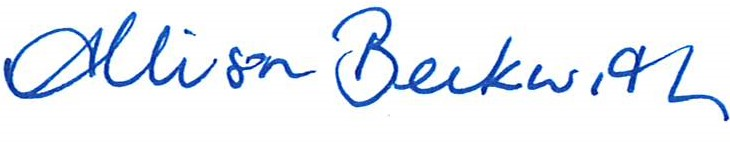 Allison Beckwith